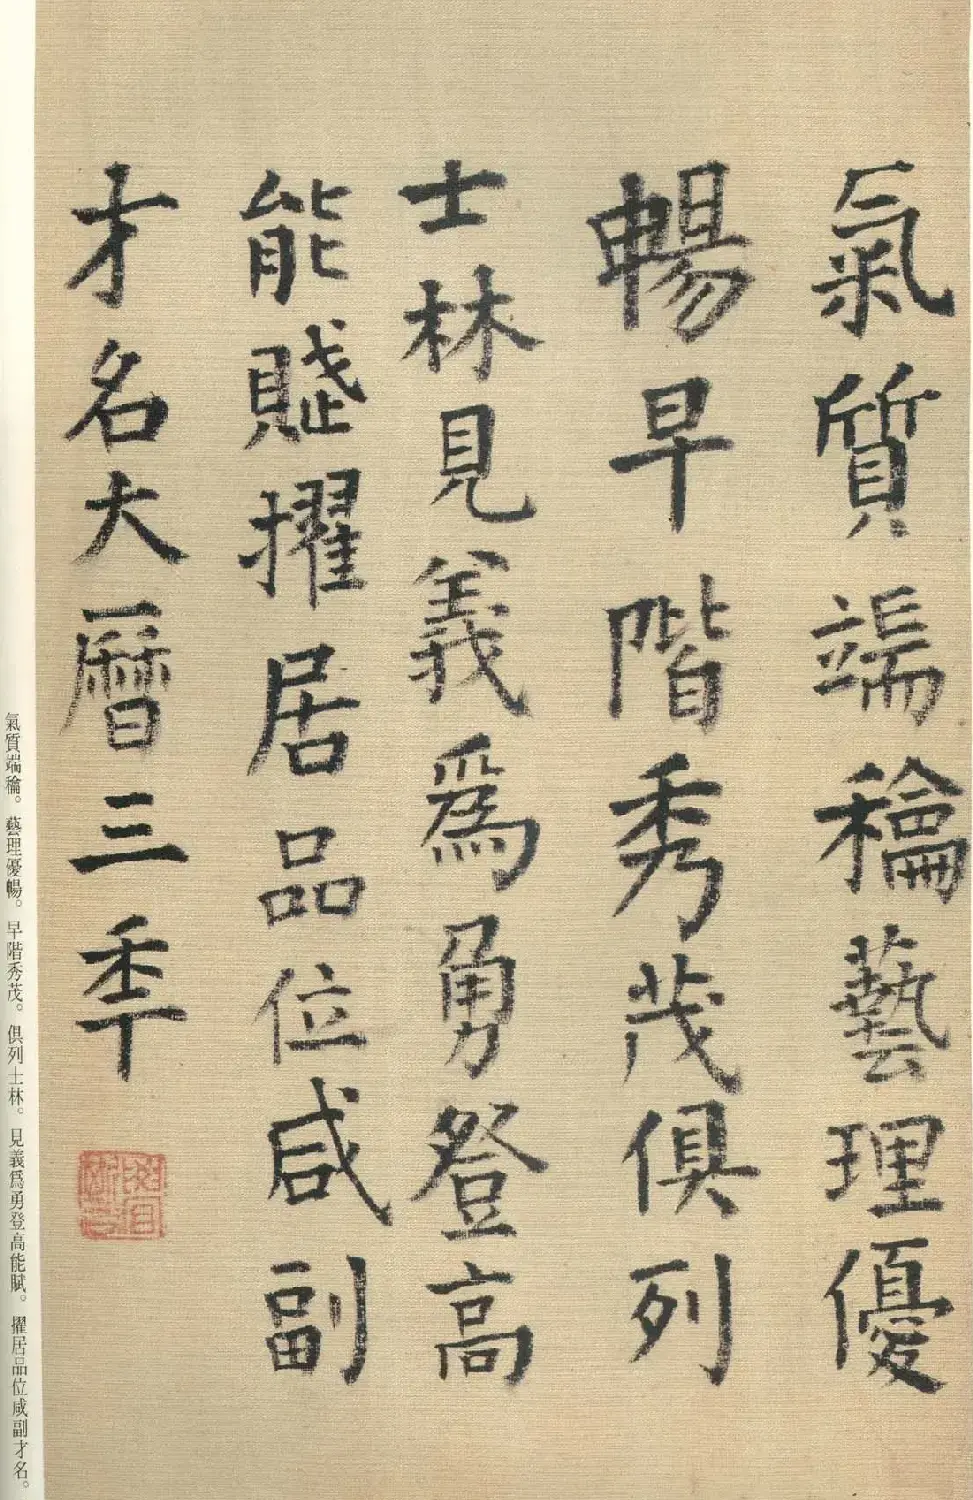 氣質端稐藝理優
暢早階秀茂俱列
士林見義爲勇登高
能賦擢居品位咸副
才名大曆三年
氣質端稐。藝理優暢。早階秀茂。俱列士林。見義爲勇登高能賦。擢居品位咸副才名。